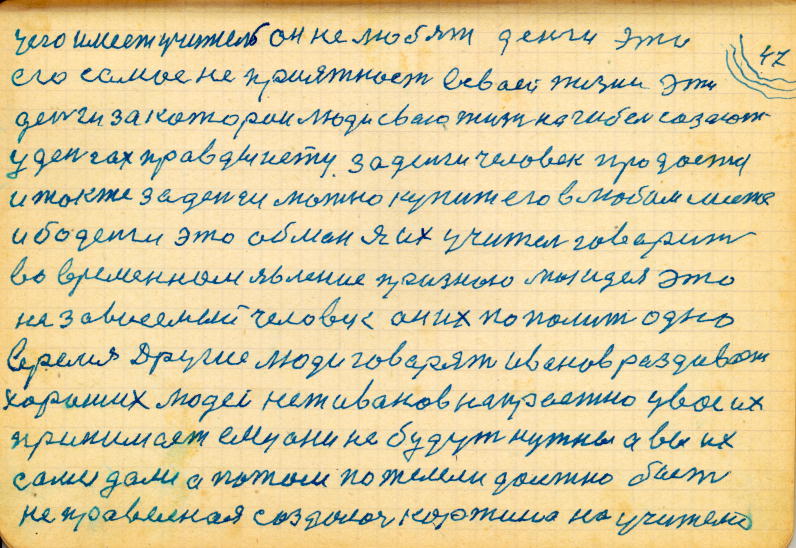 чего имеет учитель он не любят денги эти
его самое не приятност всваей жизни эти
денги за которои люди сваю жизн на гибел создают
у денгах правды нету. за денги человек продается
и также за денги можно купит его в любом месте
ибо денги это обман я их учител говарит
во временном явление признаю мои идея это
не зависемый человек а них пополит одно
время Другие люди говарят иванов раздивают
хороших людей нет иванов напрастно у воих
принимает ему они не будут нужны а вы их
сами дали а потом пожелели должно быт
не правелная создалас картина на учителю
47